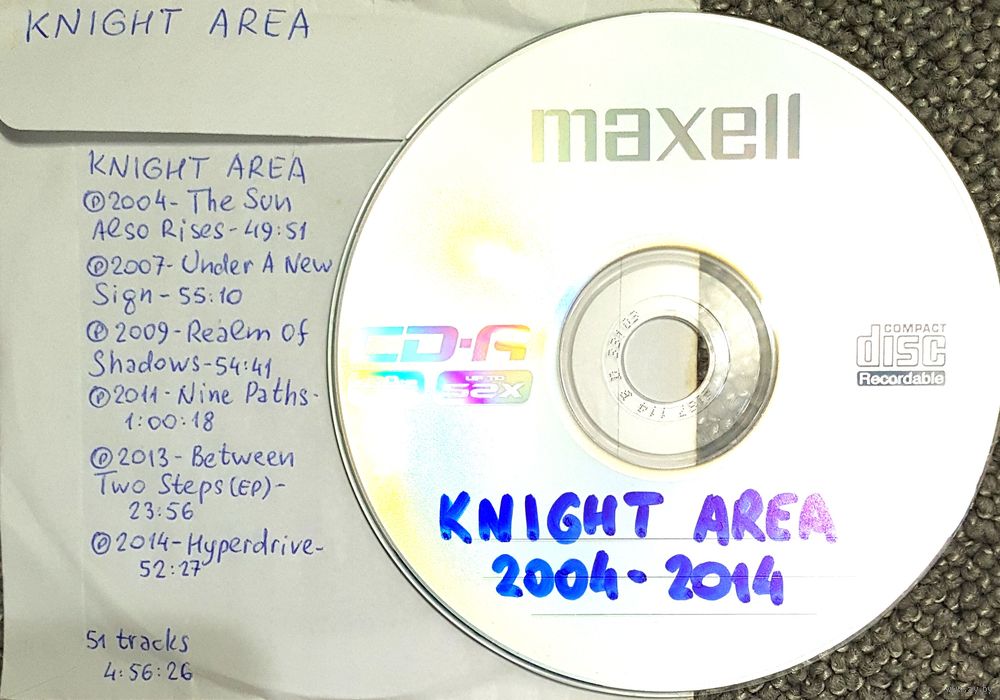 KNIGHT AREA
KNIGHT AREA
℗2004- The Sun
Also Rises-49:51
℗2007-Under A New
Sign-55:10
℗2009-Realm Of
Shadows-54:41
℗2011-Nine Paths-
1:00:18
℗2013-Between
Two Steps(EP)-
23:56
℗2014-Hyperdrive-
52:27
51 tracks
4:56:26
maxell
CD-R
UP TO 52X
COMPACT
disc
Recordable
KNIGHT AREA
2004-2014